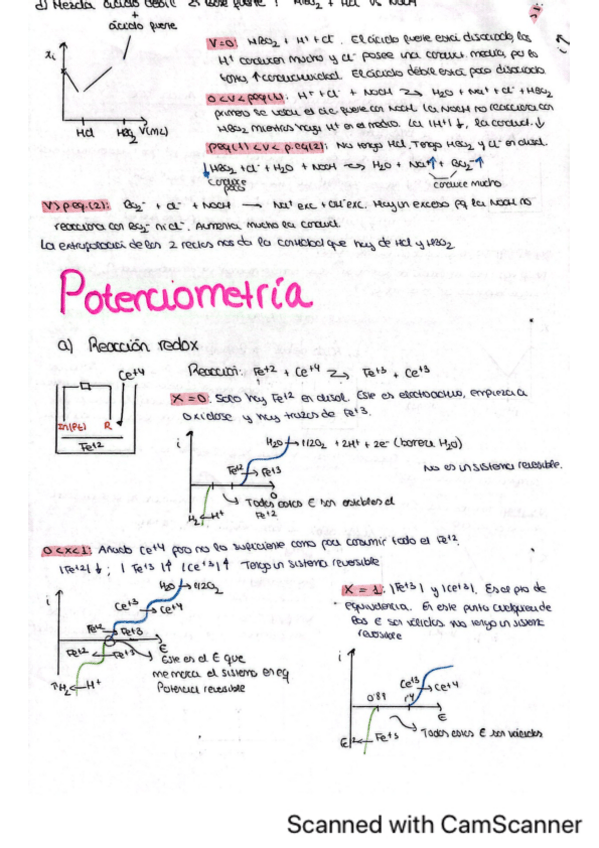 d) Mezcla ácido débil + ácido fuerte
Xi
HCl HBz V(mL)
V=0: HBz + H+ + Cl-. El ácido fuerte está disociado, los
H+ conducen mucho y Cl- posee una conduct. media, por lo
tanto, ↑ conductividad. El ácido débil está poco disociado
0<V<peq(1): H+ + Cl- + NaOH ⇄ H2O + Na+ + Cl- + HBz
primero se valora el ác. fuerte con NaOH. La NaOH no reacciona con
HBz mientras haya H+ en el medio. La [H+] ↓, la conduct. ↓
peq(1) <V< p.eq(2): No tengo HCl. Tengo HBz y Cl- en disol.
↓HBz + Cl- + H2O + NaOH ⇄ H2O + Na+↑ + Bz-↑
conduce poco
conduce mucho
V>peq.(2): Bz- + Cl- + NaOH → Na+ exc + OH- exc. Hay un exceso pq la NaOH no
reacciona con Bz- ni Cl-. Aumenta mucho la conduct.
La extrapolación de las 2 rectas nos da la cantidad que hay de HCl y HBz
Potenciometría
a) Reacción redox
Ce+4
In(Pt) R
Fe+2
Reacción: Fe+2 + Ce+4 ⇄ Fe+3 + Ce+3
X=0: Solo hay Fe+2 en disol. Este es electroactivo, empieza a
oxidarse y hay trazas de Fe+3.
i
H2O → 1/2O2 + 2H+ + 2e- (barrera H2O)
Fe+2 → Fe+3
No es un sistema reversible.
Todos estos E son estables del
Fe+2
H2 ← H+
0<x<1: Añado Ce+4 pero no lo suficiente como para consumir todo el Fe+2.
[Fe+2] ↓ ; [Fe+3] ↑ [Ce+3] ↑ Tengo un sistema reversible
i
H2O → 1/2O2
Ce+3 → Ce+4
Fe+2 → Fe+3
E
Fe+2 ← Fe+3
Este es el E que
marca el sistema en eq
Potencial reversible
H2 ← H+
X=1: [Fe+3] y [Ce+3]. Es el pto de
equivalencia. En este punto cualquiera de
los E son válidos. No tengo un sistema
reversible
i
Ce+3 → Ce+4
E
Fe+3
Todos estos E son válidos
Scanned with CamScanner